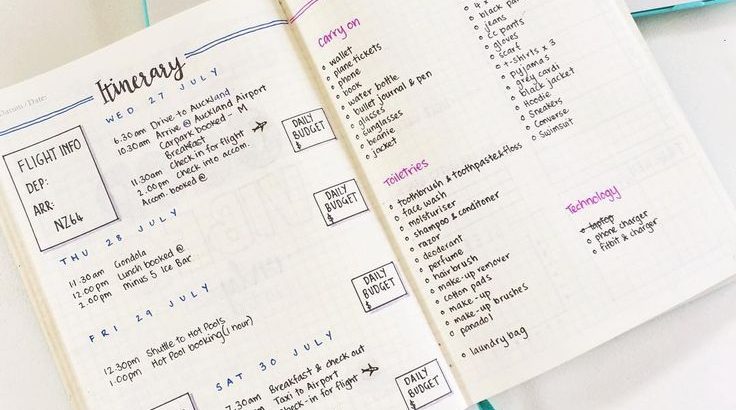 Datum / Date:
Itinerary
WED 27 JULY
6.30am Drive to Auckland
10.30am Arrive @ Auckland Airport
Carpark booked - M
Breakfast
11.30am Check in for flight
2.00pm Check into accom.
Acom. booked @
FLIGHT INFO
DEP:
ARR:
NZ64
DAILY
BUDGET
$
THU 28 JULY
11.30am Gondola
12.00pm Lunch booked @
2.00pm minus 5 Ice Bar
DAILY
BUDGET
$
FRI 29 JULY
12.30pm Shuttle to Hot Pools
1.00pm Hot Pool booking (1 hour)
DAILY
BUDGET
$
SAT 30 JULY
7.30am Breakfast & check out
Taxi to Airport
check-in for flight
DAILY
BUDGET
$
FLIGHT
carry on
wallet
plane tickets
phone
book
water bottle
bullet journal & pen
glasses
sunglasses
beanie
jacket
4 x
black
jeans
CC pants
gloves
scarf
t-shirts x 3
pyjamas
grey cardi
black jacket
Hoodie
Sneakers
Converse
Swimsuit
Toiletries
toothbrush & toothpaste & floss
face wash
moisturiser
shampoo & conditoner
razor
deodorant
perfume
hairbrush
make-up remover
cotton pads
make-up
make-up brushes
panadol
laundry bag
Technology
laptop
phone charger
fitbit & charger